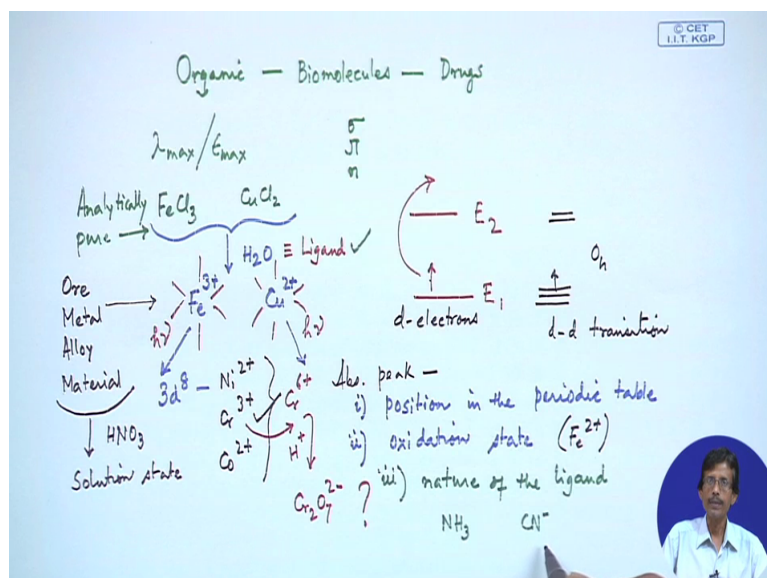 © CET
I.I.T. KGP
Organic — Biomolecules — Drugs
λmax/εmax
σ
π
n
Analytically pure → FeCl3 CuCl2
H2O ≡ Ligand ✓
Ore
Metal
Alloy
Material
→ Fe3+ Cu2+
hν hν
HNO3
Solution state
3d8 – Ni2+
Cr3+
Co2+
Cr6+
H+
Cr2O7 2- ?
E2
E1
d-electrons
Oh
d-d transition
Abs. peak —
i) position in the periodic table
ii) oxidation state (Fe2+)
iii) nature of the ligand
NH3 CN-